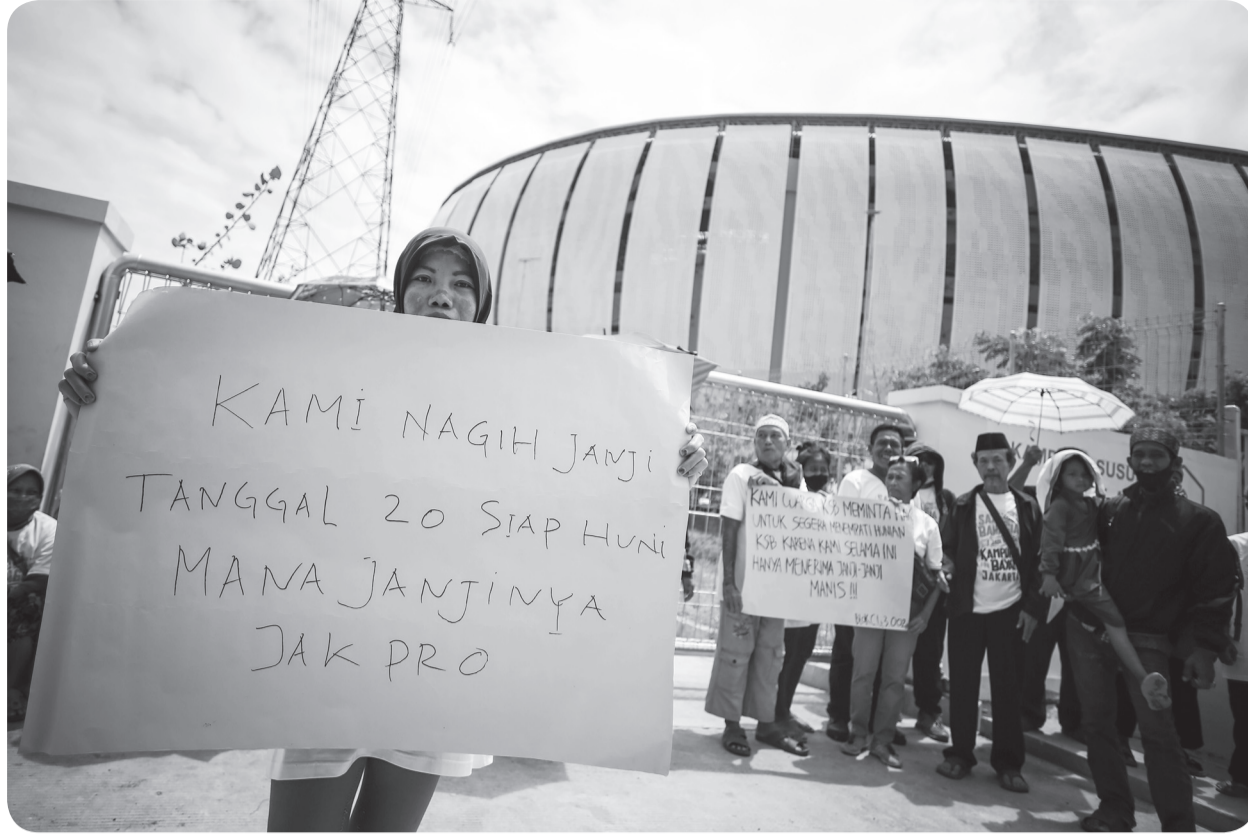 KAMI NAGIH JANJI
TANGGAL 20 SIAP HUNI
MANA JANJINYA
JAK PRO
KAMI MEMINTA
UNTUK SEGERA MENEMPATI HUNIAN
KSB KARENA KAMI SELAMA INI
HANYA MENERIMA JANJI-JANJI
MANIS!!!
KAMPUNG
JAKARTA
SUSU